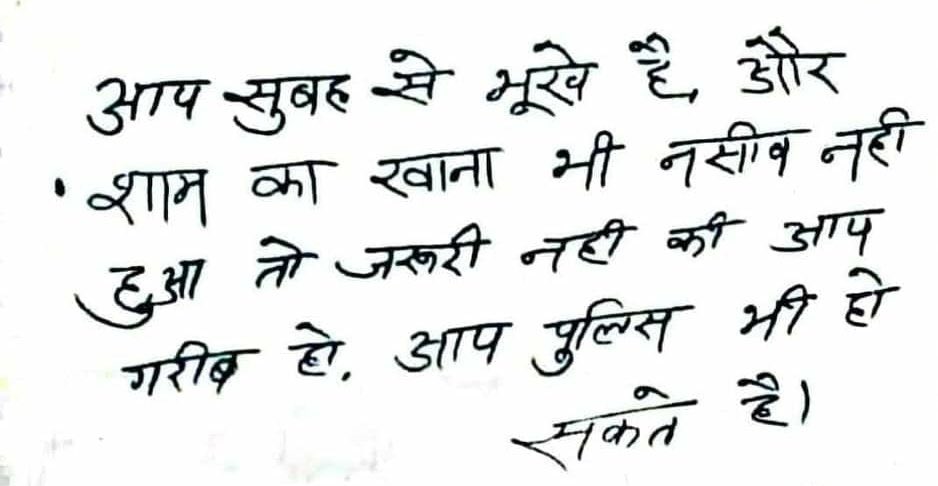 आप सुबह से भूखे है, और
शाम का खाना भी नसीब नही
हुआ तो जरूरी नही की आप
गरीब हो. आप पुलिस भी हो
सकते है।